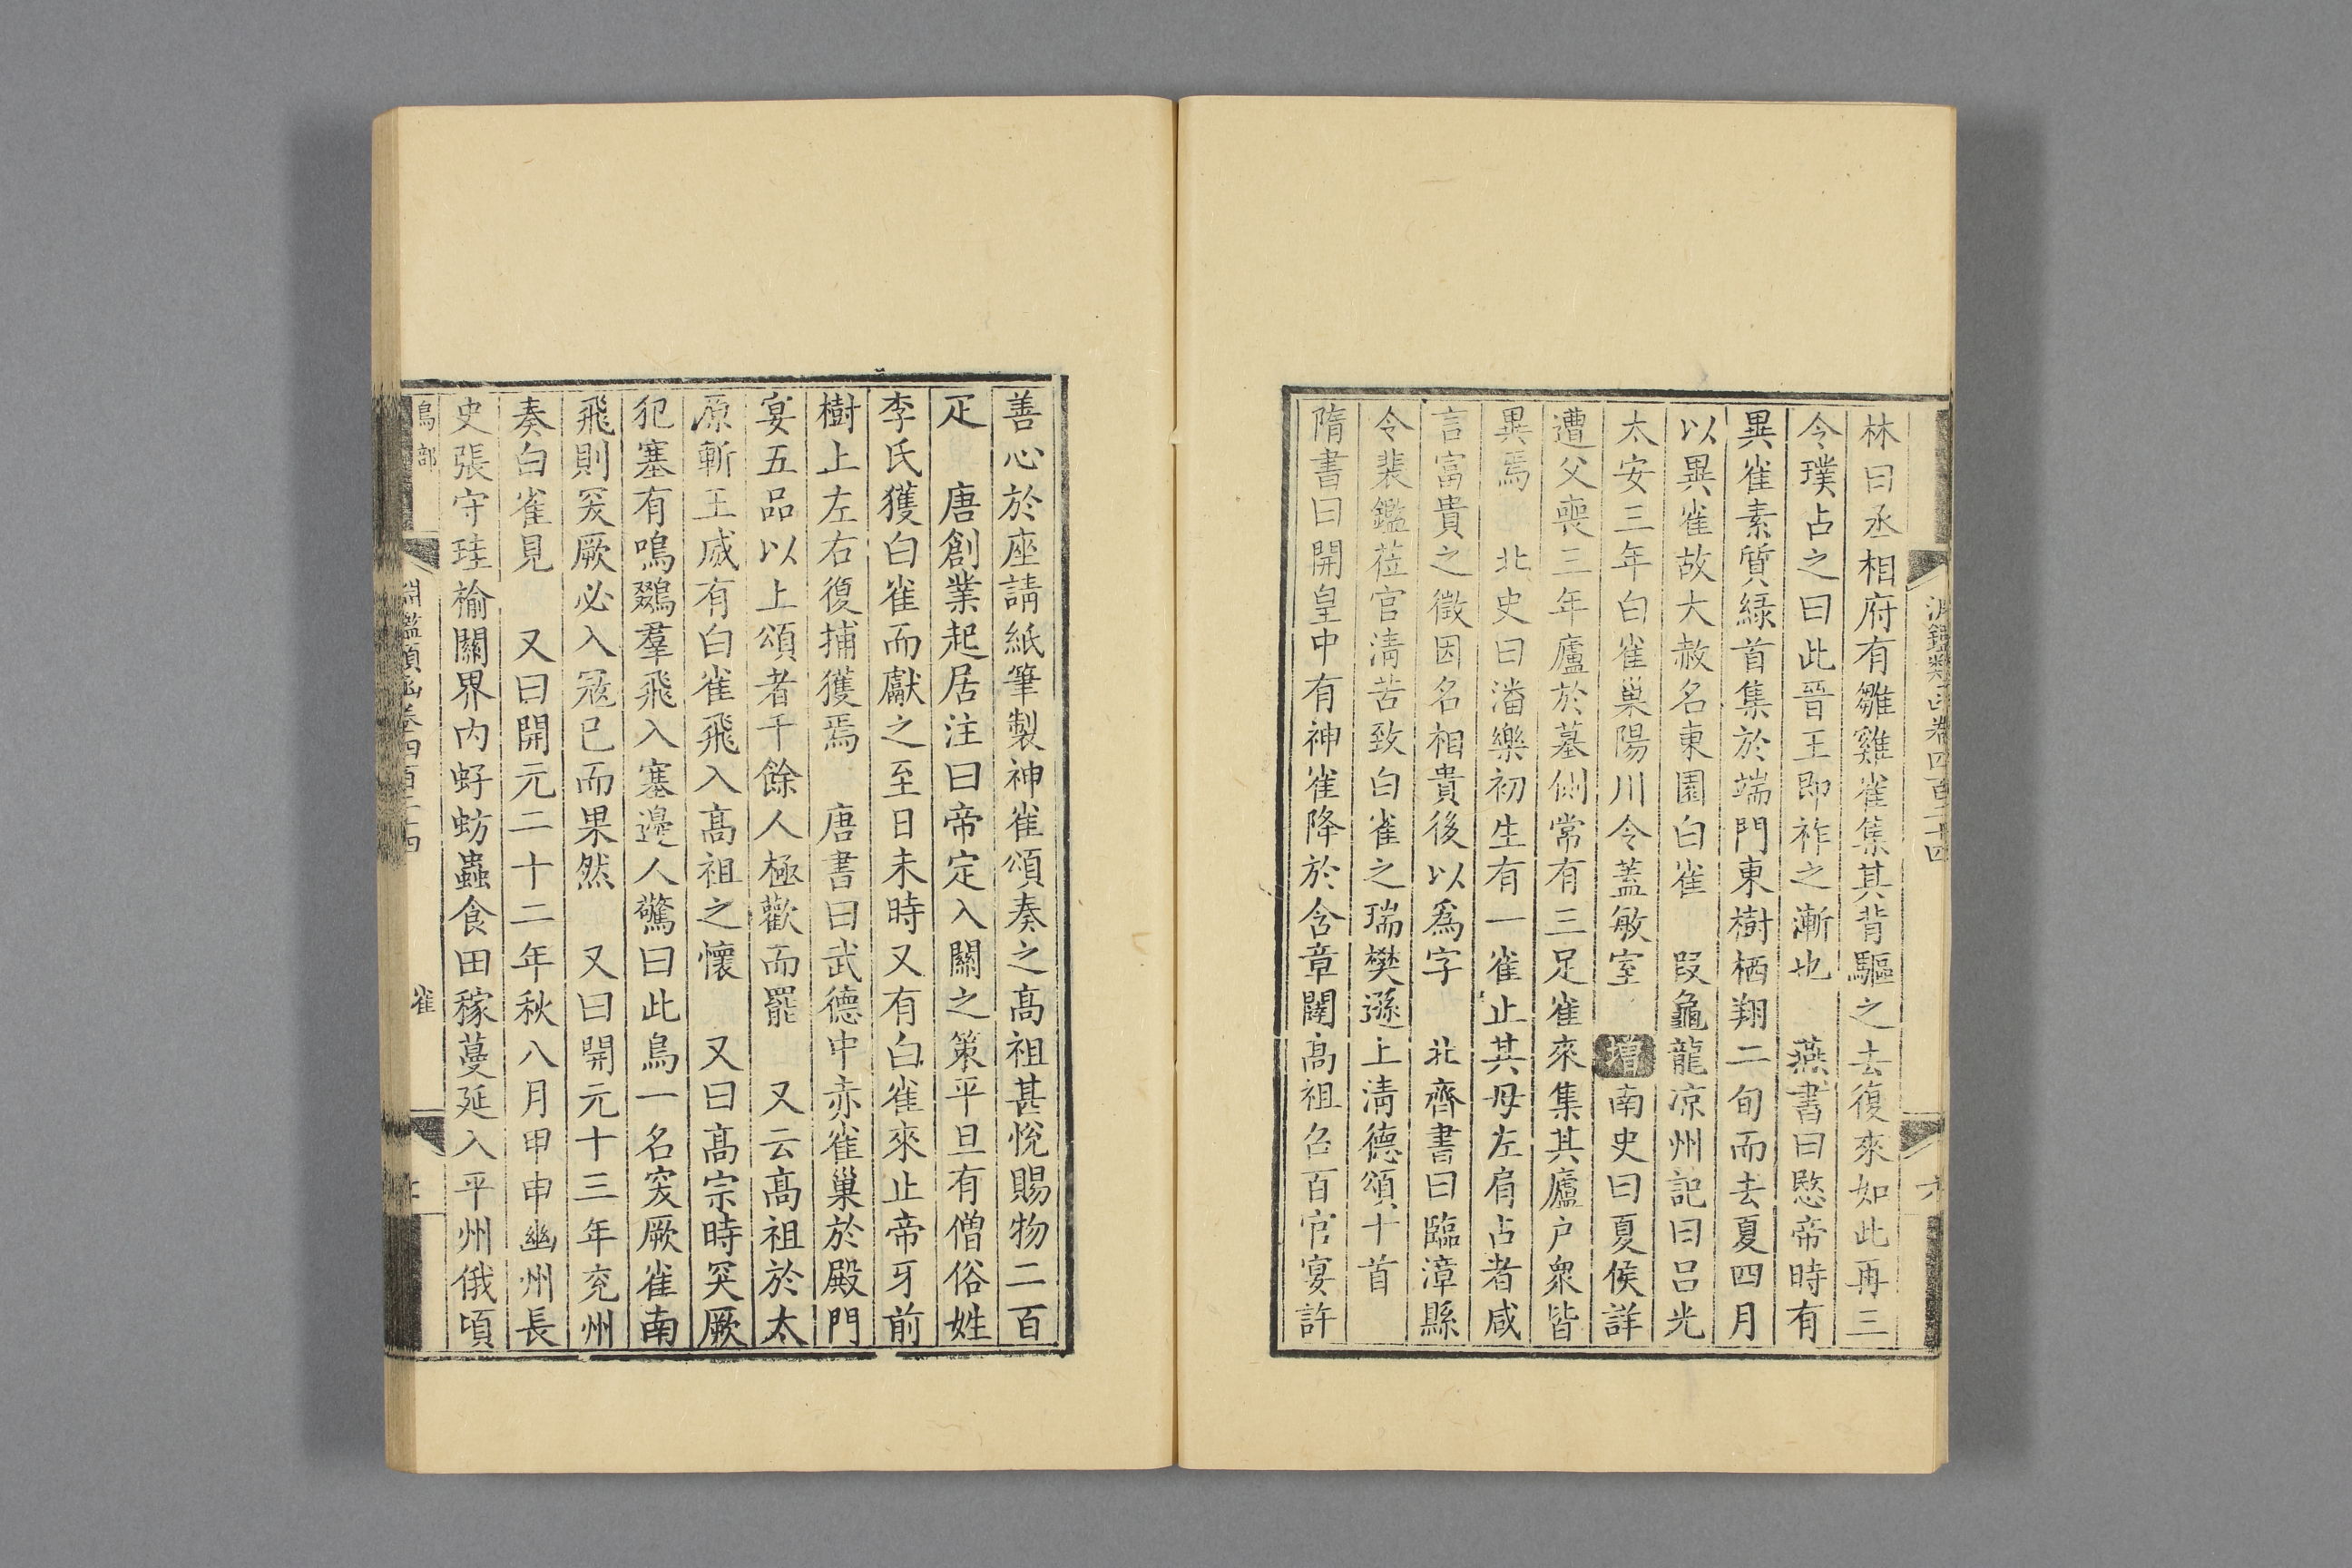 林曰丞相府有雛雞雀集其背驅之去復來如此再三
令璞占之曰此晉王即祚之漸也　燕書曰愍帝時有
異雀素質綠首集於端門東樹栖翔二旬而去夏四月
以異雀故大赦名東園白雀　叚龜龍凉州記曰呂光
太安三年白雀巢陽川令蓋敏室　增南史曰夏侯詳
遭父喪三年廬於墓側常有三足雀來集其廬户衆皆
異焉　北史曰潘樂初生有一雀止其母左肩占者咸
言富貴之徵因名相貴後以爲字　北齊書曰臨漳縣
令裴鑑莅官淸苦致白雀之瑞樊遜上淸德頌十首
隋書曰開皇中有神雀降於含章闥高祖召百官宴許
善心於座請紙筆製神雀頌奏之高祖甚悅賜物二百
疋　唐創業起居注曰帝定入關之策平旦有僧俗姓
李氏獲白雀而獻之至日未時又有白雀來止帝牙前
樹上左右復捕獲焉　唐書曰武德中赤雀巢於殿門
宴五品以上頌者千餘人極歡而罷　又云高祖於太
原斬王威有白雀飛入高祖之懷　又曰高宗時突厥
犯塞有鳴鵽羣飛入塞邊人驚曰此鳥一名突厥雀南
飛則突厥必入冦已而果然　又曰開元十三年兖州
奏白雀見　又曰開元二十二年秋八月甲申幽州長
史張守珪榆關界内虸蚄蟲食田稼蔓延入平州俄頃
鳥部　淵鑑類函卷四百二十四　雀